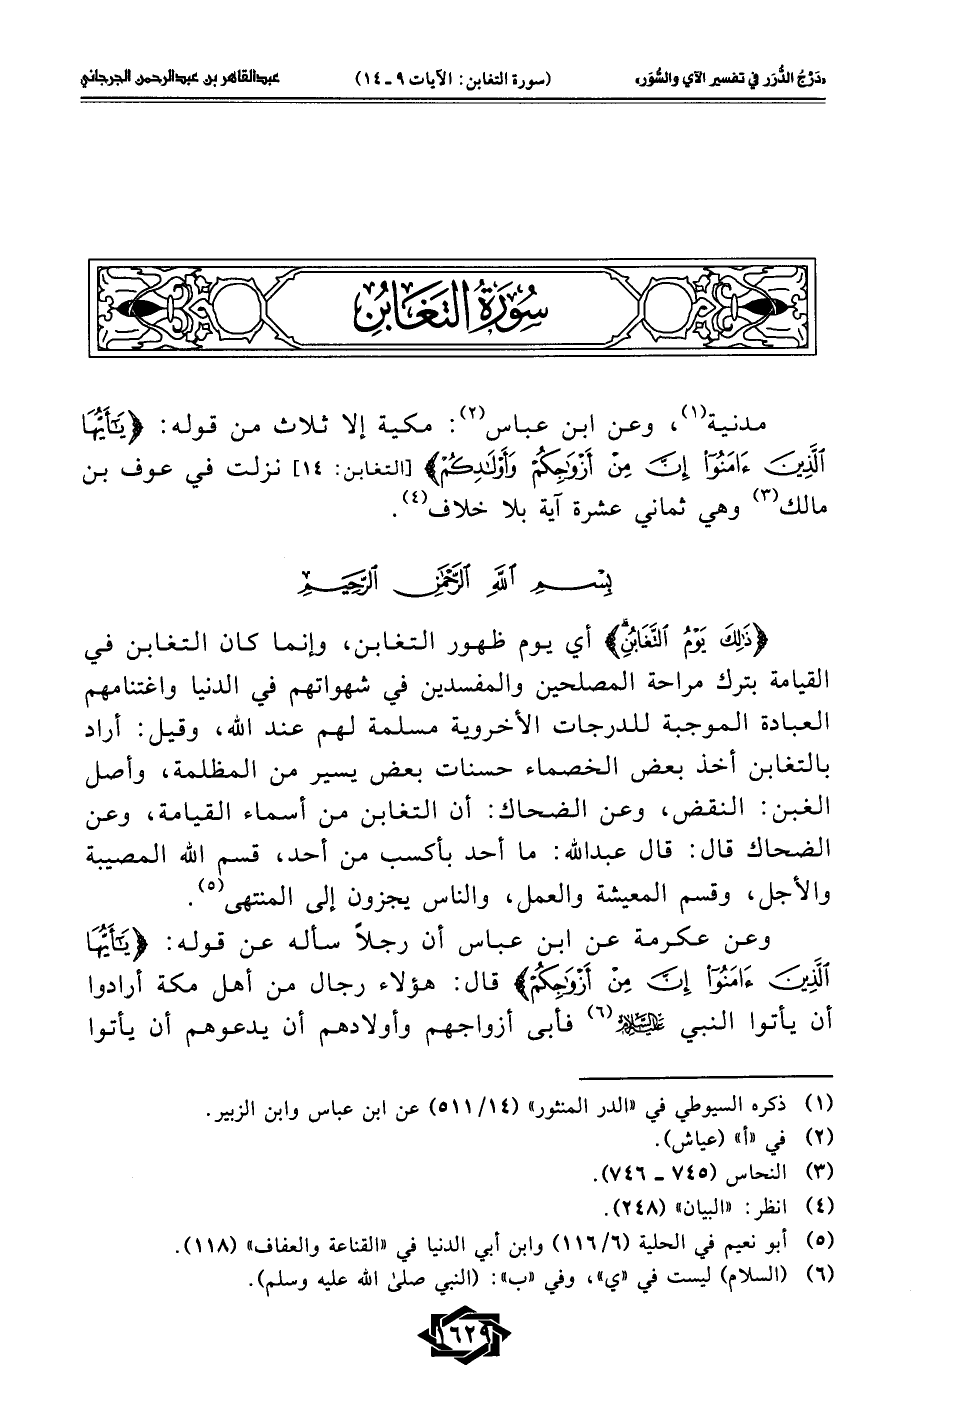 «دَرْجُ الدُّرَر في تفسير الآي والسُّوَر» (سورة التغابن: الآيات ٩ ـ ١٤) عبدالقاهر بن عبدالرحمن الجرجاني
سُورَةُ التَّغَابُن
مدنية(١)، وعن ابن عباس(٢): مكية إلا ثلاث من قوله: ﴿يَٰٓأَيُّهَا
ٱلَّذِينَ ءَامَنُوٓا۟ إِنَّ مِنْ أَزْوَٰجِكُمْ وَأَوْلَٰدِكُمْ﴾ [التغابن: ١٤] نزلت في عوف بن
مالك(٣) وهي ثماني عشرة آية بلا خلاف(٤).
بِسْمِ ٱللَّهِ ٱلرَّحْمَٰنِ ٱلرَّحِيمِ
﴿ذَٰلِكَ يَوْمُ ٱلتَّغَابُنِۗ﴾ أي يوم ظهور التغابن، وإنما كان التغابن في
القيامة بترك مراحة المصلحين والمفسدين في شهواتهم في الدنيا واغتنامهم
العبادة الموجبة للدرجات الأخروية مسلمة لهم عند الله، وقيل: أراد
بالتغابن أخذ بعض الخصماء حسنات بعض يسير من المظلمة، وأصل
الغبن: النقض، وعن الضحاك: أن التغابن من أسماء القيامة، وعن
الضحاك قال: قال عبدالله: ما أحد بأكسب من أحد، قسم الله المصيبة
والأجل، وقسم المعيشة والعمل، والناس يجزون إلى المنتهى(٥).
وعن عكرمة عن ابن عباس أن رجلاً سأله عن قوله: ﴿يَٰٓأَيُّهَا
ٱلَّذِينَ ءَامَنُوٓا۟ إِنَّ مِنْ أَزْوَٰجِكُمْ﴾ قال: هؤلاء رجال من أهل مكة أرادوا
أن يأتوا النبي عليه السلام(٦) فأبى أزواجهم وأولادهم أن يدعوهم أن يأتوا
(١) ذكره السيوطي في «الدر المنثور» (٥١١/١٤) عن ابن عباس وابن الزبير.
(٢) في «أ» (عياش).
(٣) النحاس (٧٤٥ ـ ٧٤٦).
(٤) انظر: «البيان» (٢٤٨).
(٥) أبو نعيم في الحلية (١١٦/٦) وابن أبي الدنيا في «القناعة والعفاف» (١١٨).
(٦) (السلام) ليست في «ي»، وفي «ب»: (النبي صلىٰ الله عليه وسلم).
١٦٢٩